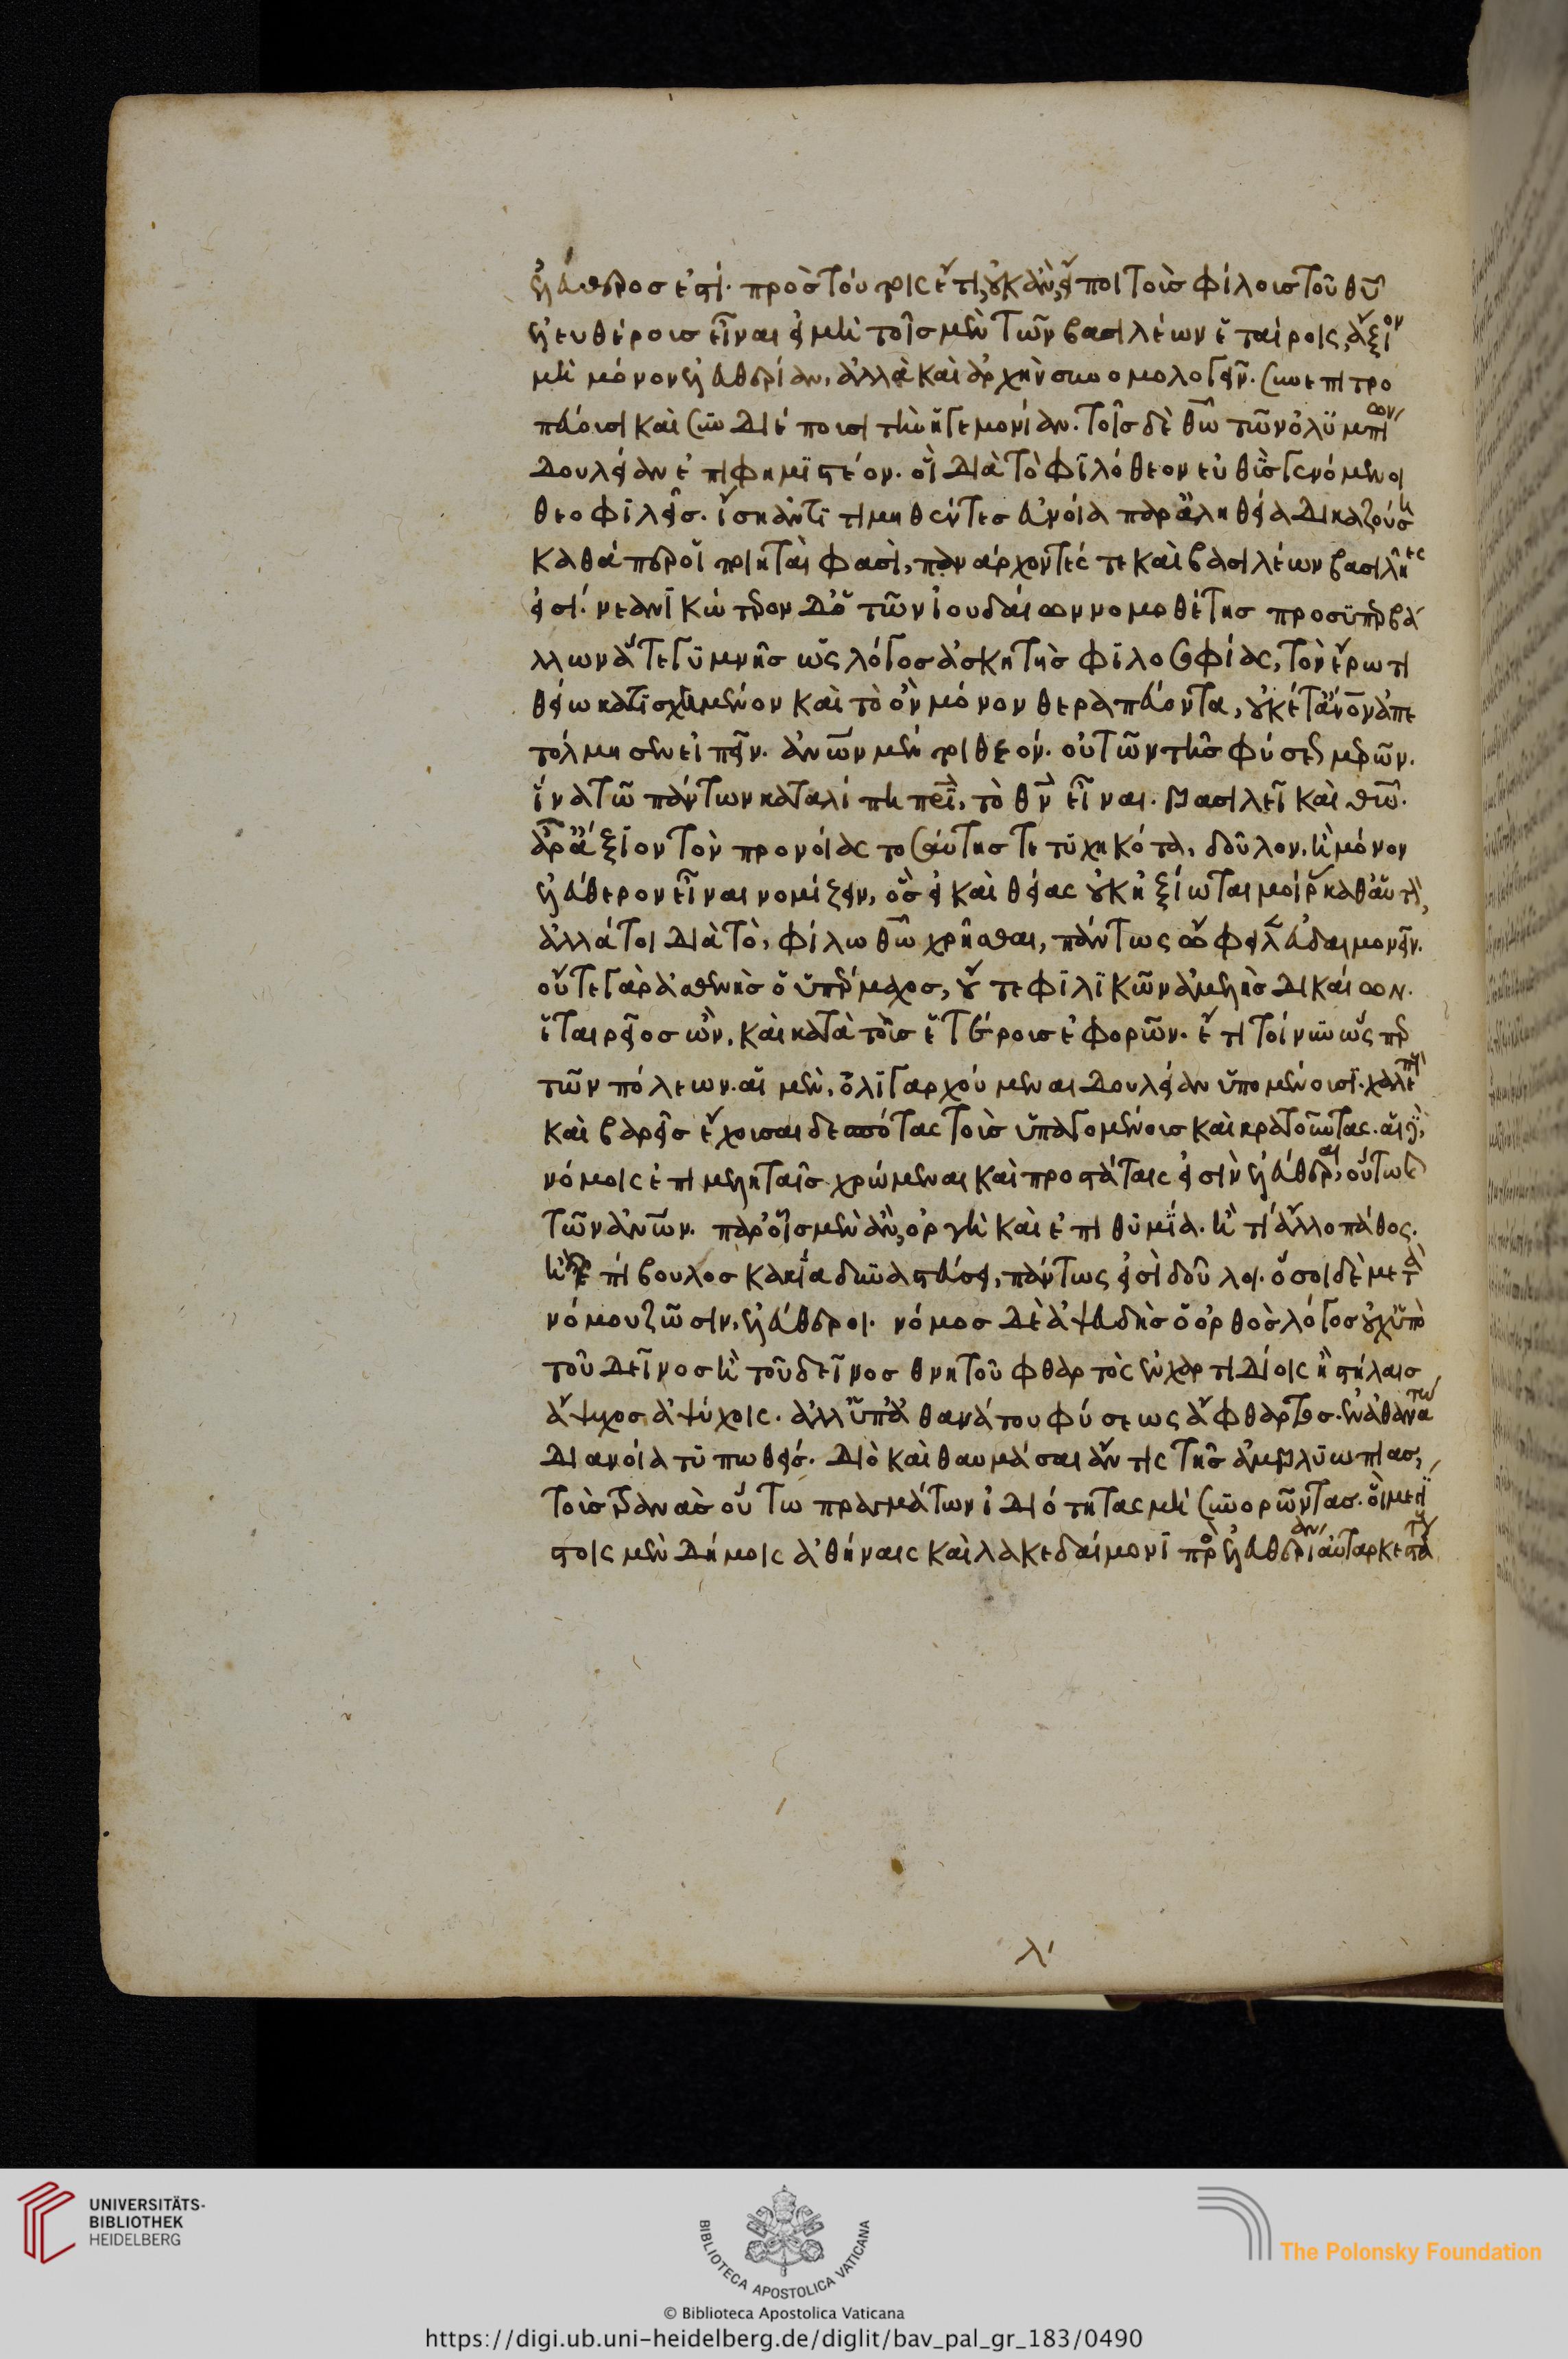 ἐλεύθερος ἐστί. πρὸς τούτοις ἔτι, οὐκ ἂν εἴποι τοὺς φίλους τοῦ θυ
ἐλευθέρους εἶναι εἰ μὴ τοῖς μὲν τῶν βασιλέων ἑταίροις, ἄξιον
μὴ μόνον ἐλευθερίαν, ἀλλὰ καὶ ἀρχὴν συνομολογεῖν. συνεπιτρο
πεύουσι καὶ συνδιέπουσι τὴν ἡγεμονίαν. τοῖς δὲ θῶ τῶν ὀλυμπίων
δουλείαν ἐπιφημιστέον. οἳ διὰ τὸ φιλόθεον εὐθὺς γενόμενοι
θεοφιλεῖς. ἴση ἀντιτιμηθέντες εὐνοία παρ' ἀληθεία δικαζούση
καθάπερ οἱ ποιηταὶ φασὶ, πανάρχοντές τε καὶ βασιλέων βασιλῆες
εἰσί. νεανικώτερον δ' ὁ τῶν ἰουδαίων νομοθέτης προσυπερβά
λλων ἅτε γυμνῆς ὡς λόγος ἀσκητὴς φιλοσοφίας, τὸν ἔρωτι
θείω κατισχημένον καὶ τὸ ὂν μόνον θεραπεύοντα, οὐκέτ' ἄνον ἀπε
τόλμησεν εἰπεῖν. ἀνων μέντοι θεόν. οὐ τῶν τῆς φύσεως μερῶν.
ἵνα τῶ πάντων καταλίπη πρι, τὸ θν εἶναι. βασιλεῖ καὶ θῶ.
ἆρ' ἄξιον τὸν προνοίας τοσαύτης τετυχηκότα, δοῦλον, ἢ μόνον
ἐλεύθερον εἶναι νομίζειν, ὃς εἰ καὶ θείας οὐκ ἠξίωται μοίρας καθ' αὑτὸν,
ἀλλά τοι διὰ τὸ, φίλω θῶ χρῆσθαι, πάντως ὤφειλεν εὐδαιμονεῖν.
οὔτε γὰρ ἀσθενὴς ὁ ὑπέρμαχος, οὔτε φιλικῶν ἀμελὴς δικαίων.
ἑταιρεῖος ὢν, καὶ κατὰ τοὺς ἑταίρους ἐφορῶν. ἔτι τοίνυν ὥσπερ
τῶν πόλεων. αἱ μὲν, ὀλιγαρχούμεναι δουλείαν ὑπομένουσι. χαλεποὺς
καὶ βαρεῖς ἔχουσαι δεσπότας τοὺς ὑπαγομένους καὶ κρατοῦντας. αἱ δὲ,
νόμοις ἐπιμεληταῖς χρώμεναι καὶ προστάταις εἰσὶν ἐλεύθεραι, οὕτως
τῶν ἀνων. παρ' οἷς μὲν ἂν, ὀργὴ καὶ ἐπιθυμία. ἢ τί ἄλλο πάθος.
ἢ ἐπίβουλος κακία δυναστεύσει, πάντως εἰσὶ δοῦλοι. ὅσοι δὲ μετὰ
νόμου ζῶσιν, ἐλεύθεροι. νόμος δὲ ἀψευδὴς ὁ ὀρθὸς λόγος οὐχ ὑπὸ
τοῦ δεῖνος ἢ τοῦ δεῖνος θνητοῦ φθαρτὸς ἐν χαρτιδίοις ἢ στήλαις
ἄψυχος ἀψύχοις. ἀλλ' ὑπ' ἀθανάτου φύσεως ἄφθαρτος. ἐν ἀθανάτω
διανοία τυπωθείς. διὸ καὶ θαυμάσαι ἄν τις τῆς ἀμβλυωπίας,
τοὺς τρανὰς οὕτω πραγμάτων ἰδιότητας μὴ συνορῶντας. οἳ μεγί
στοις μὲν δήμοις ἀθήναις καὶ λακεδαίμονι πρὸς ἐλευθερίαν αὐταρκεστά
λ'
UNIVERSITÄTS-
BIBLIOTHEK
HEIDELBERG
BIBLIOTECA APOSTOLICA VATICANA
The Polonsky Foundation
© Biblioteca Apostolica Vaticana
https://digi.ub.uni-heidelberg.de/diglit/bav_pal_gr_183/0490